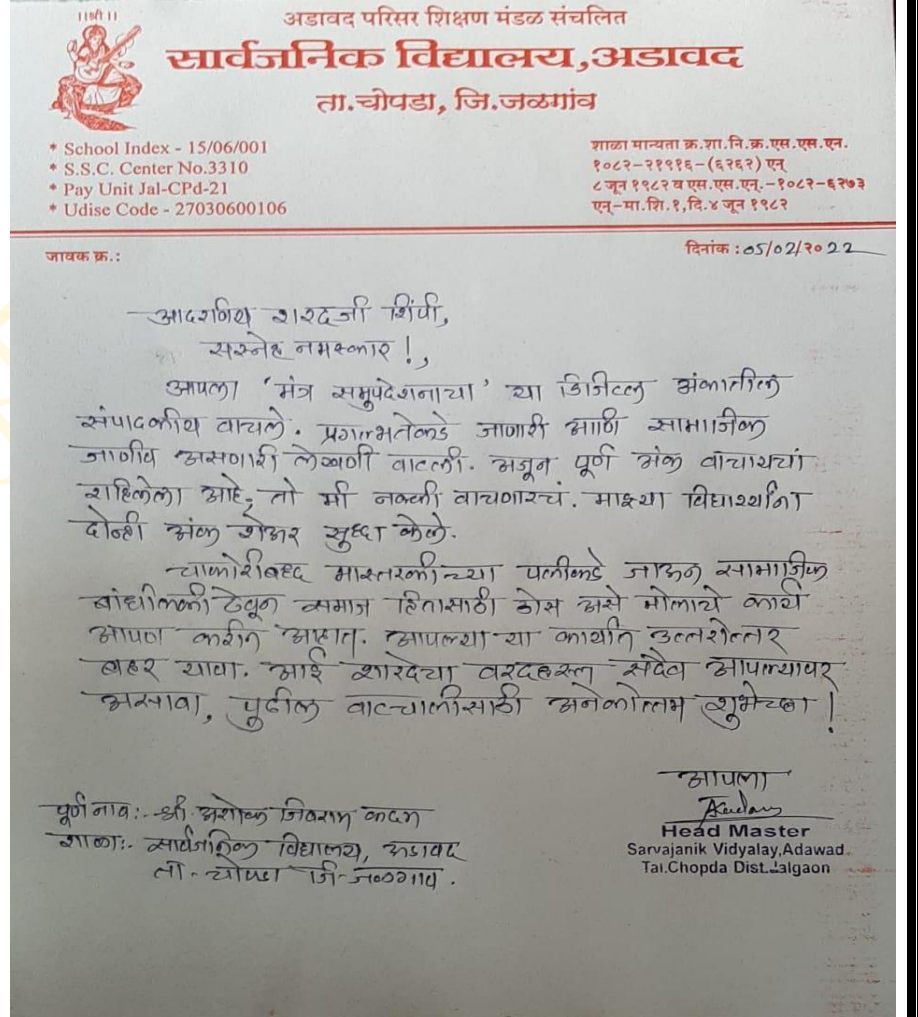 ॥श्री॥
अडावद परिसर शिक्षण मंडळ संचलित
सार्वजनिक विद्यालय,अडावद
ता.चोपडा, जि.जळगांव
* School Index - 15/06/001
* S.S.C. Center No.3310
* Pay Unit Jal-CPd-21
* Udise Code - 27030600106
शाळा मान्यता क्र.शा.नि.क्र.एस.एस.एन.
१०८२-२१९१६-(६२६२) एन्
८ जून १९८२ व एस.एस.एन.-१०८२-६२७३
एन्-मा.शि.१,दि.४ जून १९८२
जावक क्र.:
दिनांक : 05/02/२०22
आदरणिय शरदजी शिंपी,
सस्नेह नमस्कार !,
आपला 'मंत्र समुपदेशनाचा' या डिजिटल अंकातील
संपादकीय वाचले. प्रगल्भतेकडे जाणारी आणि सामाजिक
जाणीव असणारी लेखणी वाटली. अजून पूर्ण अंक वाचायचां
राहिलेला आहे, तो मी नक्की वाचणारचं. माझ्या विद्यार्थ्यांना
दोन्ही अंक शेअर सुध्दा केले.
चाकोरीबध्द मास्तरकीच्या पलीकडे जाऊन सामाजिक
बांधीलकी ठेवून समाज हितासाठी ठोस असे मोलाचे कार्य
आपण करीत आहात. आपल्या या कार्यात उत्तरोत्तर
बहर यावा. आई शारदेचा वरदहस्त सदैव आपल्यावर
असावा, पुढील वाटचालीसाठी अनेकोत्तम शुभेच्छा !
आपला
Head Master
Sarvajanik Vidyalay,Adawad
Tal.Chopda Dist.Jalgaon
पूर्ण नाव:- श्री. अशोक जिवराम कदम
शाळा:- सार्वजनिक विद्यालय, अडावद
ता-चोपडा जि-जळगाव.